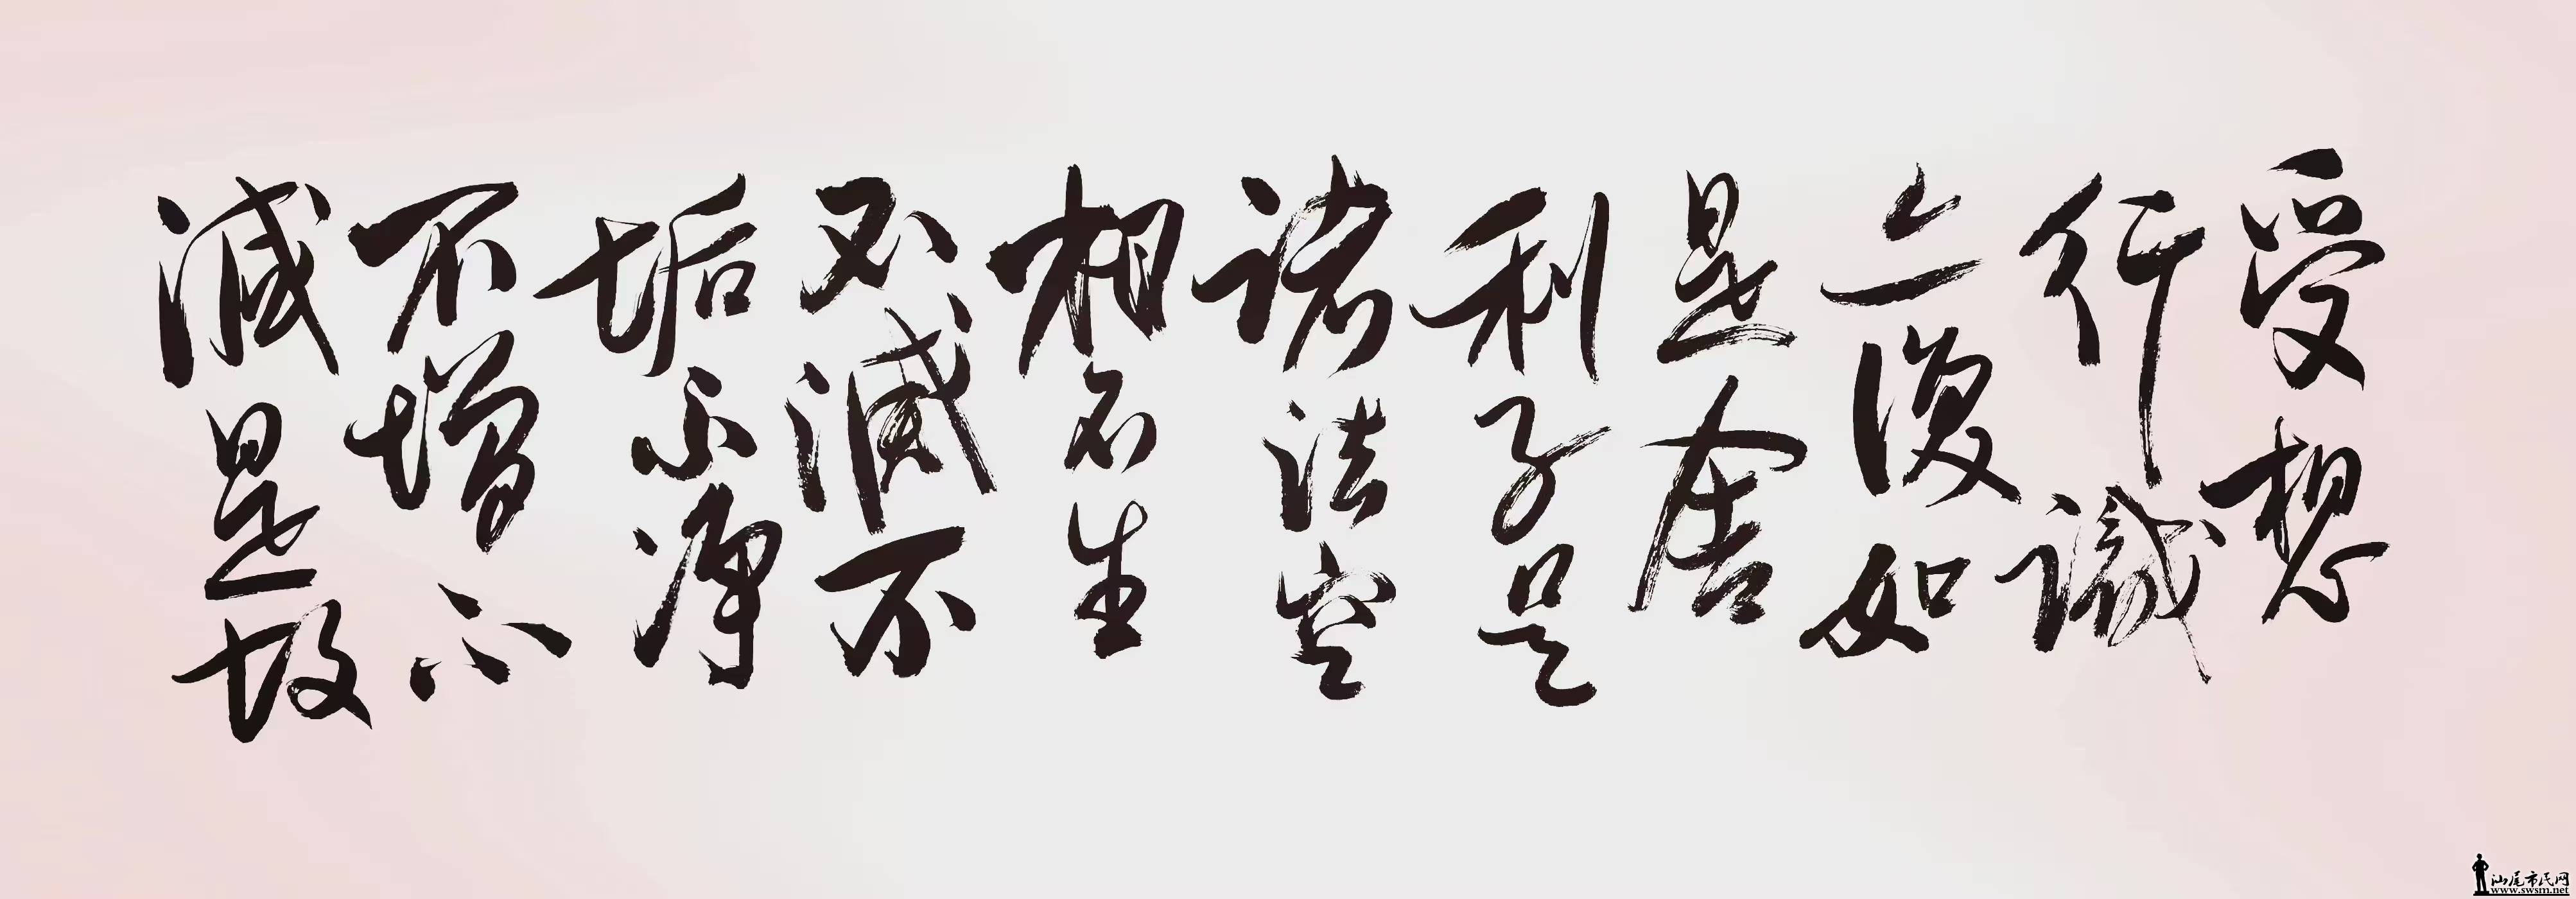 受想
行識
亦復如
是舍
利子是
諸法空
相不生
不減不
垢不淨
不增不
減是故
汕尾市民网
www.swsm.net